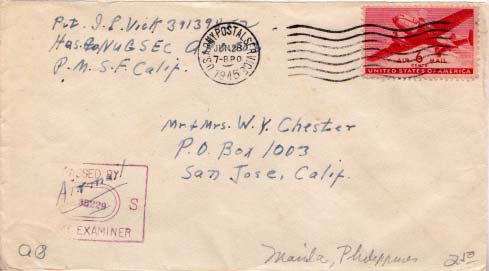 Pvt. I. L. Vick
P.M.S.F. Calif.
U.S. ARMY POSTAL SERVICE
JUN 28
7-8 PO
1945
AIR 6 MAIL
CENTS
UNITED STATES OF AMERICA
Mr & Mrs. W. Y. Chester
P.O. Box 1003
San Jose, Calif.
PASSED BY
Air mail
38229
S
EXAMINER
Manila, Philippines
2.50